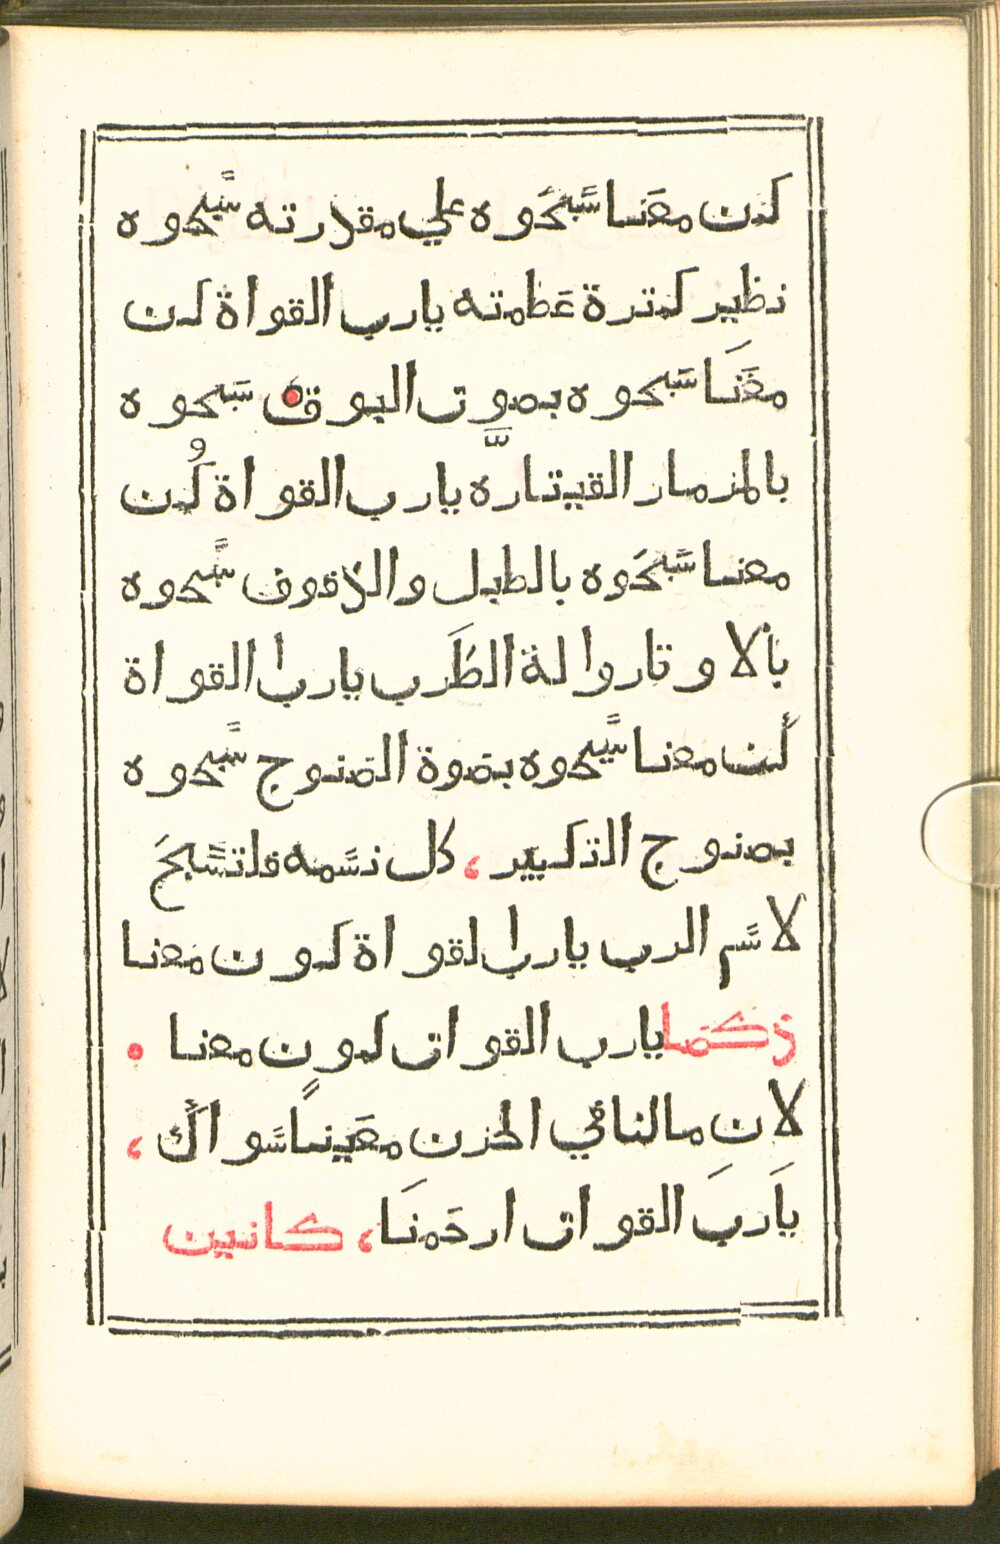 كن معَنا سَّبَحَوه علي مقدرته سَّبحوه
نظير كترة عَظمته يارب القواة كن
معَنَا سَّبَحوه بصوت البوق سَبَحوه
بالمزمار القيتاره يارب القواة كُن
معنا سَّبَحَوه بالطبل والدفوف سَّبحوه
بألاوتاروا لة الطَرب يارب القواة
كُن معنا سَّبحوه بصَوة الصَنوج سَّبَحوه
بصنوج التكبير، كل نسَمه فلتسَّبحَ
لاسَّم الرب يارب القواة كون معَنا
ذكصَا يارب القوات كون معنا •
لان مالنا في الحزن معَينًا سَواكَ،
يَارَبَ القوات ارحَمنَا، كانين